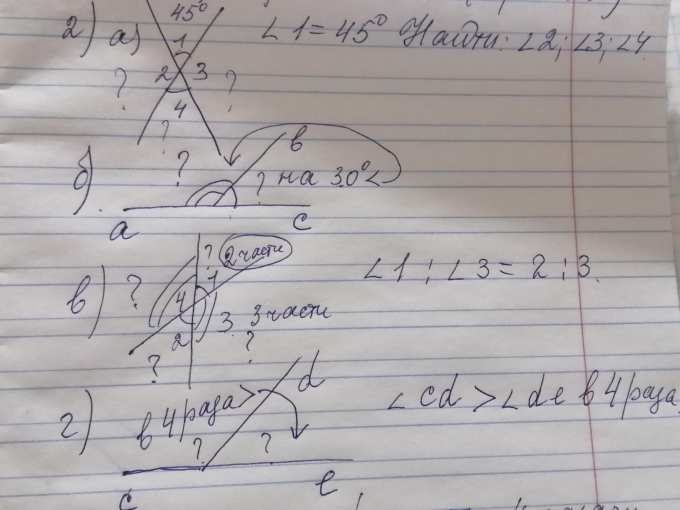 2) а) 45° 1 2 3 4 ? ? ? ∠1 = 45° Найти: ∠2; ∠3; ∠4.
б) ? ? на 30° < a b c
в) ? ? 2 части 1 4 3 3 части 2 ? ? ∠1 : ∠3 = 2 : 3.
г) в 4 раза > d ? ? c e ∠cd > ∠de в 4 раза